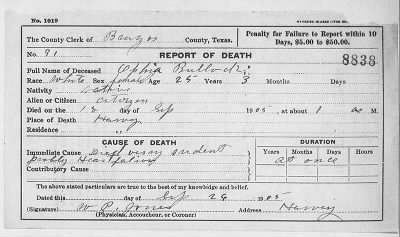 No. 1019
The County Clerk of Brazos County, Texas.
Penalty for Failure to Report within 10 Days, $5.00 to $50.00.
No. 91 REPORT OF DEATH 8838
Full Name of Deceased Ophia Bullock
Race White Sex female Age 25 Years 3 Months Days
Nativity Native
Alien or Citizen Citizen
Died on the 12 day of Sep 1905, at about 1 a M.
Place of Death Harvey
Residence "
CAUSE OF DEATH DURATION
Immediate Cause Died very sudent Years Months Days Hours
probly Heart failure at once
Contributory Cause
The above stated particulars are true to the best of my knowledge and belief.
Dated this day of Sep 28 1905
(Signature) W. P. Jones Address Harvey
(Physician, Accoucheur, or Coroner)